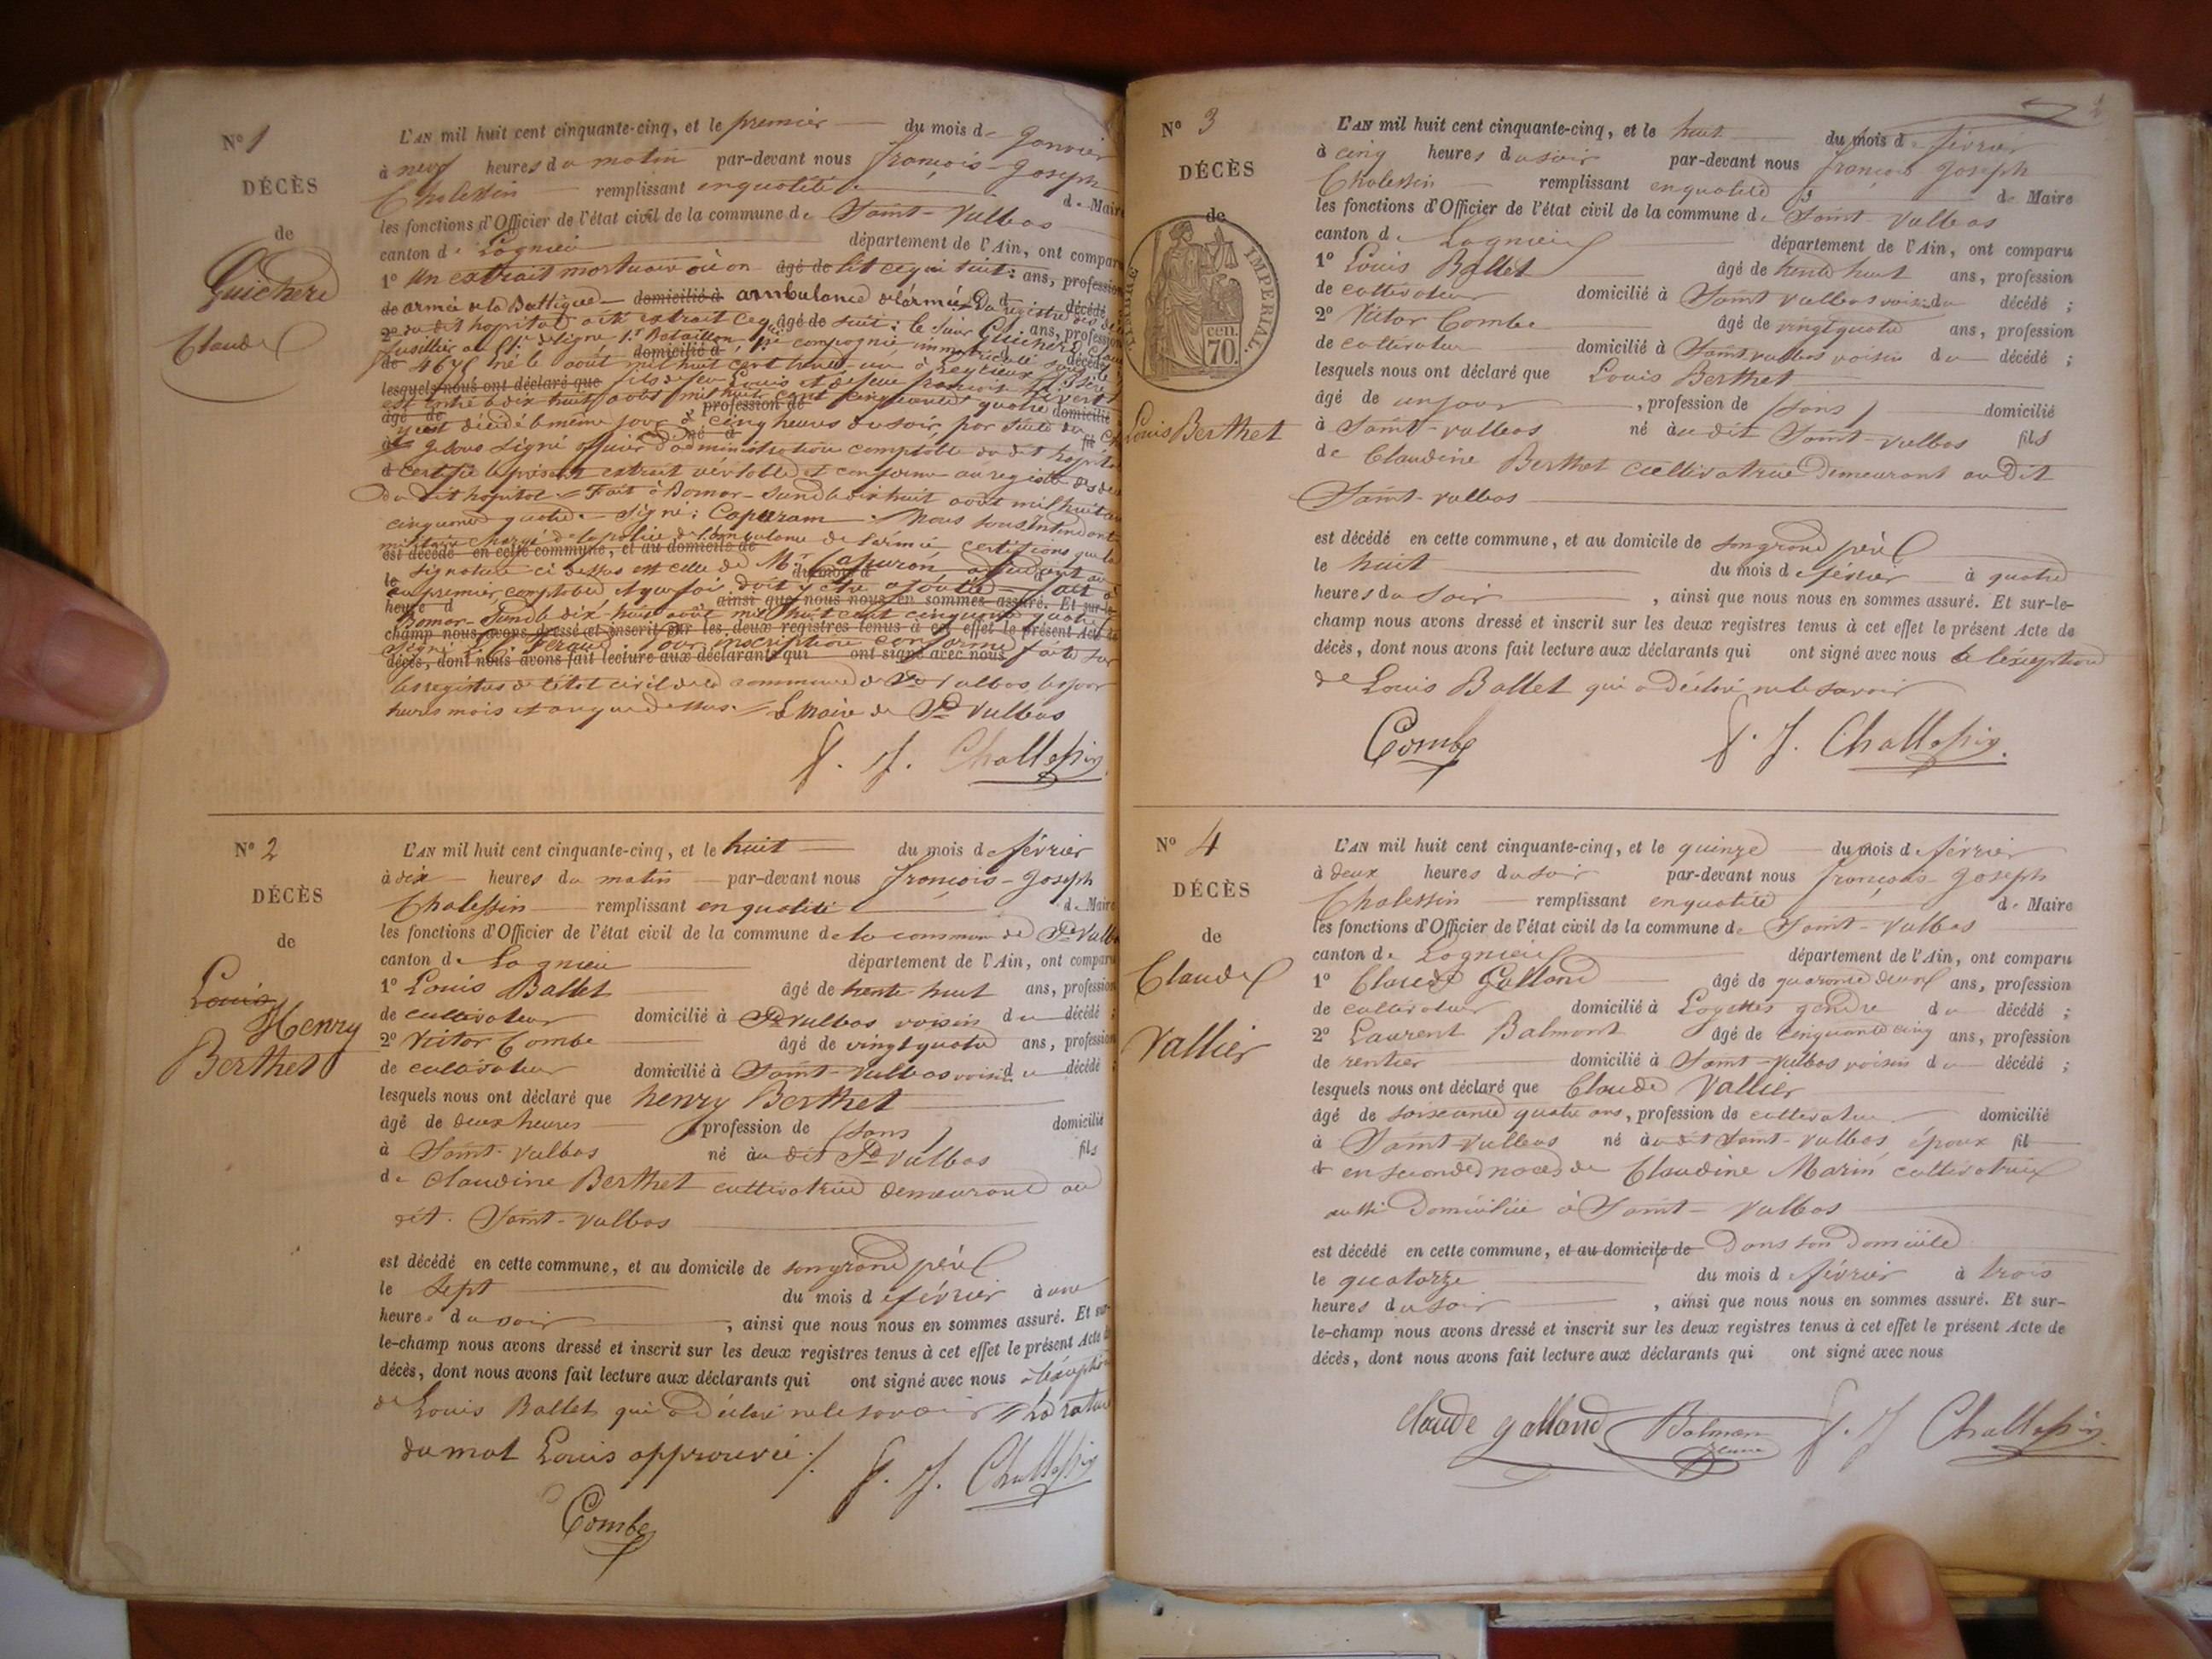 N° 1
DÉCÈS
de
Guichere
Claude
L'AN mil huit cent cinquante-cinq, et le premier du mois de Janvier
à neuf heures du matin par-devant nous françois-Joseph
Chalessin remplissant en qualité de Maire
les fonctions d'Officier de l'état civil de la commune de Saint-Vulbas
canton de Lagnieu département de l'Ain, ont comparu
1° Un extrait mortuaire où on âgé de lit ce qui suit: ans, profession
de armée de la Baltique domicilié à ambulance de l'armée. Du registre des décédé
2° du dit hopital a été extrait ce qui âgé de suit: le Sieur Guichere ans, profession
fusillier au de ligne 1r Bataillon compagnie immatriculé
de 4676 né le août mil huit cent trente-un à domicilié à décédé
lesquels nous ont déclaré que fils de feu Louis et de feue françoise
est entré le dix huit août mil huit cent cinquante quatre
âgé de profession de domicilié
y est décédé le même jour à cinq heures du soir, par suite du
à né à fils
Je sous signé officier d'administration comptable du dit hopital
certifie le présent extrait véritable et conforme au registre des décès
du dit hopital. Fait à Bomar-Sund le dix huit août mil huit cent
cinquante quatre. Signé: Capuram. Nous sous Intendant
militaire chargé de la police de l'ambulance de l'armée certifions que la
est décédé en cette commune, et au domicile de
signature ci dessus est celle de Mr. Capuron,
le du mois d à
premier comptable et que foi doit y être ajoutée fait à
heure d ainsi que nous nous en sommes assuré. Et sur-le-
Bomar-Sund le dix-huit août mil huit cent cinquante quatre
champ nous avons dressé et inscrit sur les deux registres tenus à cet effet le présent Acte de
Signé Feraud. Pour inscription conforme faite sur
décès, dont nous avons fait lecture aux déclarants qui ont signé avec nous
les registres de l'état civil de la commune de St Vulbas, les jour
heures mois et an que dessus. Le Maire de St Vulbas
f. J. Challessin
N° 2
DÉCÈS
de
Louis
Henry
Berthet
L'AN mil huit cent cinquante-cinq, et le huit du mois de février
à dix heures du matin par-devant nous françois-Joseph
Chalessin remplissant en qualité de Maire
les fonctions d'Officier de l'état civil de la commune de la commune de St Vulbas
canton de Lagnieu département de l'Ain, ont comparu
1° Louis Ballet âgé de trente huit ans, profession
de cultivateur domicilié à St Vulbas voisin du décédé ;
2° Victor Combe âgé de vingt quatre ans, profession
de cultivateur domicilié à Saint-Vulbas voisin du décédé ;
lesquels nous ont déclaré que henry Berthet
âgé de deux heures profession de (sans) domicilié
à Saint-Vulbas né à au dit St Vulbas fils
de Claudine Berthet cultivatrice demeurant au
dit. Saint-Vulbas
est décédé en cette commune, et au domicile de son grand père
le sept du mois de février à une
heure du soir , ainsi que nous nous en sommes assuré. Et sur-
le-champ nous avons dressé et inscrit sur les deux registres tenus à cet effet le présent Acte de
décès, dont nous avons fait lecture aux déclarants qui ont signé avec nous à l'exception
de Louis Ballet qui a déclaré ne le savoir // La rature
du mot Louis approuvée /.
f. J. Challessin
Combe
N° 3
DÉCÈS
de
TIMBRE IMPERIAL.
70. cen.
Louis Berthet
L'AN mil huit cent cinquante-cinq, et le huit du mois de février
à cinq heures du soir par-devant nous françois Joseph
Chalessin remplissant en qualité de Maire
les fonctions d'Officier de l'état civil de la commune de Saint-Vulbas
canton de Lagnieu département de l'Ain, ont comparu
1° Louis Ballet âgé de trente huit ans, profession
de cultivateur domicilié à Saint Vulbas voisin du décédé ;
2° Victor Combe âgé de vingt quatre ans, profession
de cultivateur domicilié à Saint Vulbas voisin du décédé ;
lesquels nous ont déclaré que Louis Berthet
âgé de un jour , profession de (sans) domicilié
à Saint-Vulbas né à au dit Saint-Vulbas fils
de Claudine Berthet cultivatrice Demeurant au Dit
Saint-Vulbas
est décédé en cette commune, et au domicile de son grand père
le huit du mois de février à quatre
heures du soir , ainsi que nous nous en sommes assuré. Et sur-le-
champ nous avons dressé et inscrit sur les deux registres tenus à cet effet le présent Acte de
décès, dont nous avons fait lecture aux déclarants qui ont signé avec nous à l'exception
de Louis Ballet qui a déclaré ne le savoir
Combe f. J. Challessin.
N° 4
DÉCÈS
de
Claude
Vallier
L'AN mil huit cent cinquante-cinq, et le quinze du mois de février
à deux heures du soir par-devant nous françois-Joseph
Chalessin remplissant en qualité de Maire
les fonctions d'Officier de l'état civil de la commune de Saint-Vulbas
canton de Lagnieu département de l'Ain, ont comparu
1° Claude Galland âgé de quarante deux ans, profession
de cultivateur domicilié à Loyettes gendre du décédé ;
2° Laurent Balmont âgé de cinquante cinq ans, profession
de rentier domicilié à Saint-Vulbas voisin du décédé ;
lesquels nous ont déclaré que Claude Vallier
âgé de soixante quatre ans, profession de cultivateur domicilié
à Saint-Vulbas né à au dit Saint-Vulbas époux fil
d en secondes noces de Claudine Marin cultivatrice
aussi Domiciliée à Saint-Vulbas
est décédé en cette commune, et au domicile de Dans son Domicile
le quatorze du mois de février à trois
heures du soir , ainsi que nous nous en sommes assuré. Et sur-
le-champ nous avons dressé et inscrit sur les deux registres tenus à cet effet le présent Acte de
décès, dont nous avons fait lecture aux déclarants qui ont signé avec nous
Claude Galland Balmon jeune f. J Challessin.